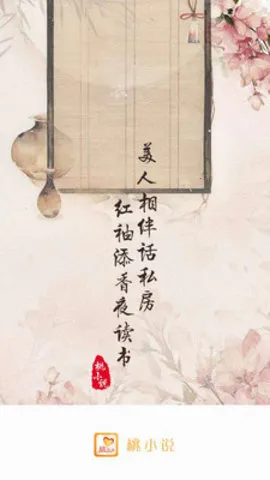 美人相伴话私房
红袖添香夜读书
桃小说
桃小说